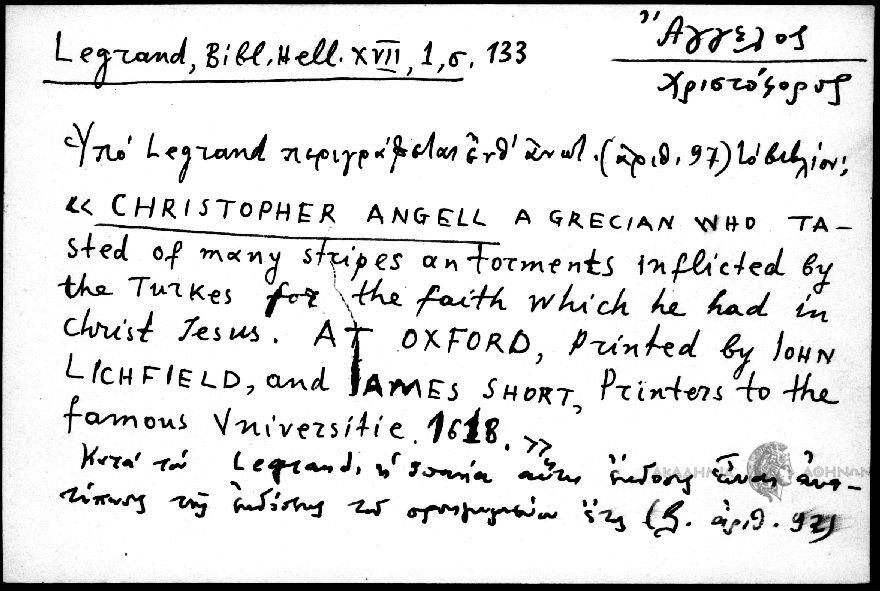 Legrand, Bibl. Hell. XVII, 1, σ. 133
Ἄγγελος
Χριστόφορος
Ὑπό Legrand περιγράφεται ἐνθ' ἀνωτ. (ἀριθ. 97) τό βιβλίον:
« CHRISTOPHER ANGELL A GRECIAN WHO TA–
sted of many stripes an torments inflicted by
the Turkes for the faith which he had in
Christ Iesus. AT OXFORD, Printed by IOHN
LICHFIELD, and IAMES SHORT, Printers to the
famous Vniversitie. 1618. »
Κατά τόν Legrand, ἡ σπανία αὕτη ἔκδοσις εἶναι ἀνα–
τύπωσις τῆς ἐκδόσεως τοῦ προηγουμένου ἔτους (β. ἀριθ. 92)
ΑΚΑΔΗΜΙΑ ΑΘΗΝΩΝ